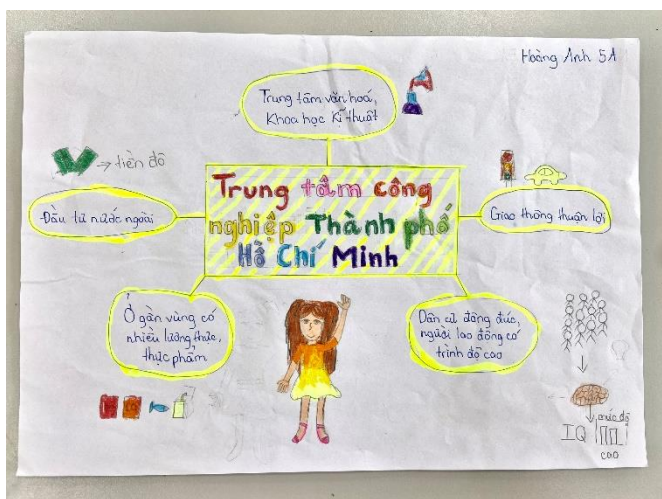 Hoàng Anh 5A
Trung tâm văn hoá,
Khoa học kĩ thuật
→ tiền đô
Đầu tư nước ngoài
Trung tâm công
nghiệp Thành phố
Hồ Chí Minh
Giao thông thuận lợi
Ở gần vùng có
nhiều lương thực,
thực phẩm
Dân cư đông đúc,
người lao động có
trình độ cao
mức độ
IQ
cao